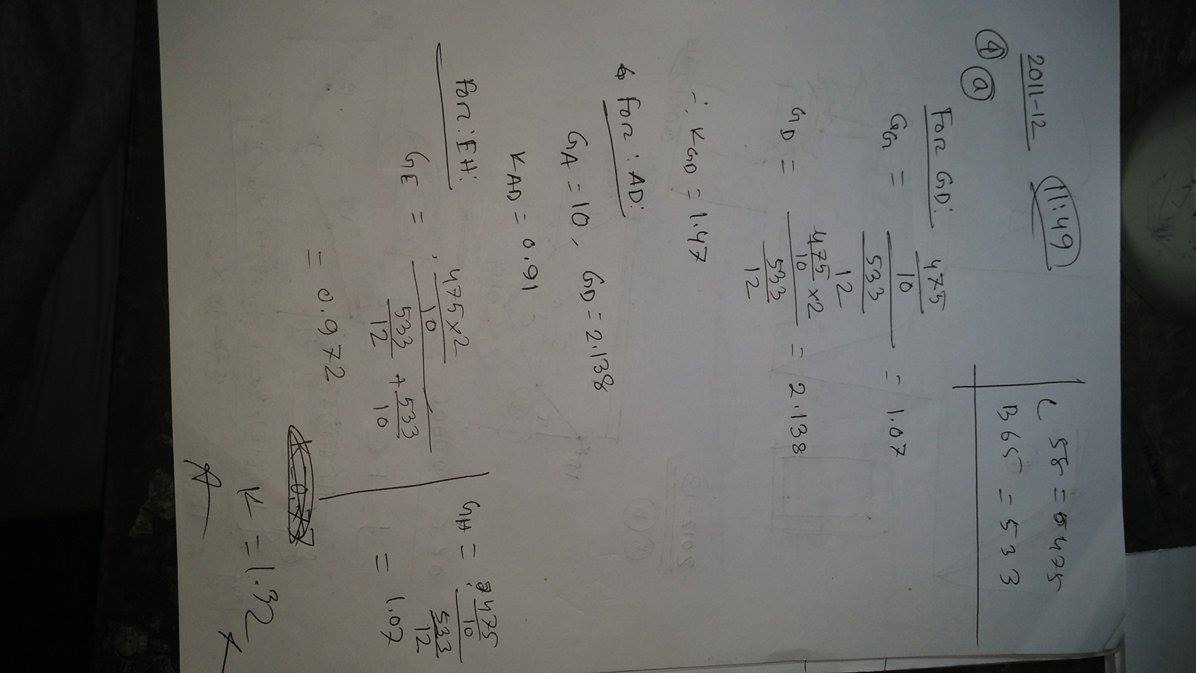 2011-12 11:49
① ⓐ
C 58 = 475
B 65 = 533
For GD:
G_G = (475/10) / (533/12) = 1.07
G_D = (475/10 ×2) / (533/12) = 2.138
∴ K_GD = 1.47
For : AD:
G_A = 10, G_D = 2.138
K_AD = 0.91
For : EH:
G_E = (475×2/10) / (533/12 + 533/10)
= 0.972
G_H = (475/10) / (533/12)
= 1.07
K = 1.32